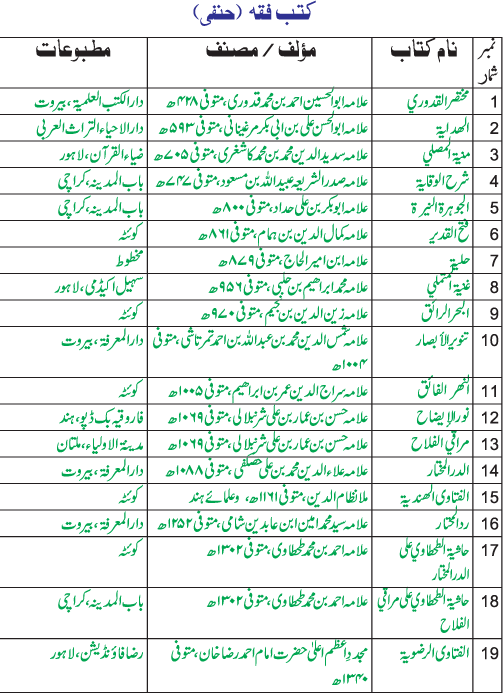 کتب فقہ (حنفی)
نمبر شمار نام کتاب مؤلف / مصنف مطبوعات
1 مختصر القدوري علامہ ابوالحسین احمد بن محمد قدوری، متوفی ۴۲۸ھ دارالکتب العلمیۃ، بیروت
2 الهداية علامہ ابوالحسن علی بن ابی بکر مرغینانی، متوفی ۵۹۳ھ دار الاحیاء التراث العربی
3 منية المصلي علامہ سدید الدین محمد بن محمد کاشغری، متوفی ۷۰۵ھ ضیاء القرآن، لاہور
4 شرح الوقاية علامہ صدر الشریعہ عبید اللہ بن مسعود، متوفی ۷۴۷ھ باب المدینہ، کراچی
5 الجوهرة النيرة علامہ ابوبکر بن علی حداد، متوفی ۸۰۰ھ باب المدینہ، کراچی
6 فتح القدير علامہ کمال الدین بن ہمام، متوفی ۸۶۱ھ کوئٹہ
7 حلية علامہ ابن امیر الحاج، متوفی ۸۷۹ھ مخطوط
8 غنية المتملي علامہ محمد ابراهیم بن حلبی، متوفی ۹۵۶ھ سہیل اکیڈمی، لاہور
9 البحر الرائق علامہ زین الدین بن نجیم، متوفی ۹۷۰ھ کوئٹہ
10 تنوير الأبصار علامہ شمس الدین محمد بن عبد اللہ بن احمد تمرتاشی، متوفی دارالمعرفۃ، بیروت
۱۰۰۴ھ
11 النهر الفائق علامہ سراج الدین عمر بن ابراهیم، متوفی ۱۰۰۵ھ کوئٹہ
12 نور الإيضاح علامہ حسن بن عمار بن علی شرنبلالی، متوفی ۱۰۶۹ھ فاروقیہ بک ڈپو، ہند
13 مراقي الفلاح علامہ حسن بن عمار بن علی شرنبلالی، متوفی ۱۰۶۹ھ مدینۃ الاولیاء، ملتان
14 الدر المختار علامہ علاء الدین محمد بن علی حصکفی، متوفی ۱۰۸۸ھ دارالمعرفۃ، بیروت
15 الفتاوى الهندية ملا نظام الدین، متوفی ۱۱۶۱ھ، وعلمائے ہند کوئٹہ
16 رد المحتار علامہ سید محمد امین ابن عابدین شامی، متوفی ۱۲۵۲ھ دارالمعرفۃ، بیروت
17 حاشية الطحطاوي على علامہ احمد بن محمد طحطاوی، متوفی ۱۳۰۲ھ کوئٹہ
الدر المختار
18 حاشية الطحطاوي على مراقي علامہ احمد بن محمد طحطاوی، متوفی ۱۳۰۲ھ باب المدینہ، کراچی
الفلاح
19 الفتاوى الرضوية مجدد اعظم اعلیٰ حضرت امام احمد رضا خان، متوفی رضا فاؤنڈیشن، لاہور
۱۳۴۰ھ